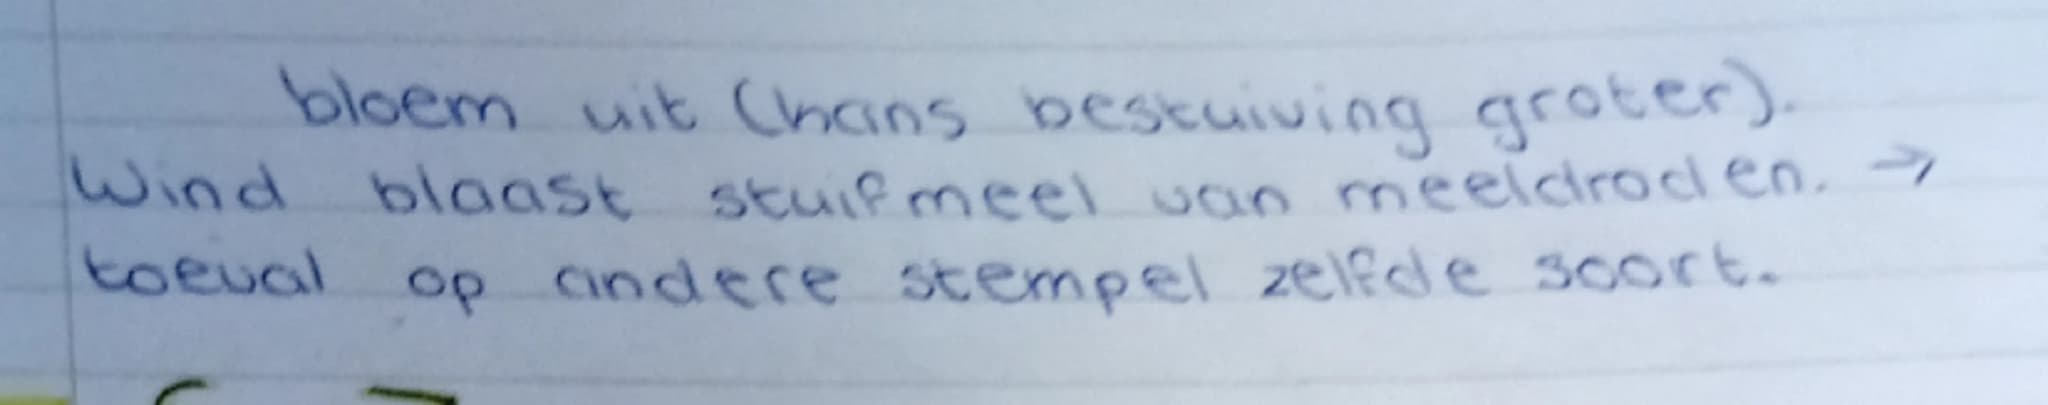 bloem uit (kans bestuiving groter).
Wind blaast stuifmeel van meeldraden. →
toeval op andere stempel zelfde soort.